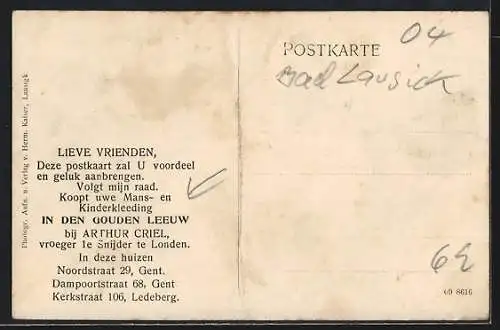 Photogr. Aufn. u. Verlag v. Herm. Kaiser, Lausigk
LIEVE VRIENDEN,
Deze postkaart zal U voordeel
en geluk aanbrengen.
Volgt mijn raad.
Koopt uwe Mans- en
Kinderkleeding
IN DEN GOUDEN LEEUW
bij ARTHUR CRIEL,
vroeger 1e Snijder te Londen.
In deze huizen
Noordstraat 29, Gent.
Dampoortstraat 68, Gent
Kerkstraat 106, Ledeberg.
POSTKARTE
04
Bad Lausick
69 8616